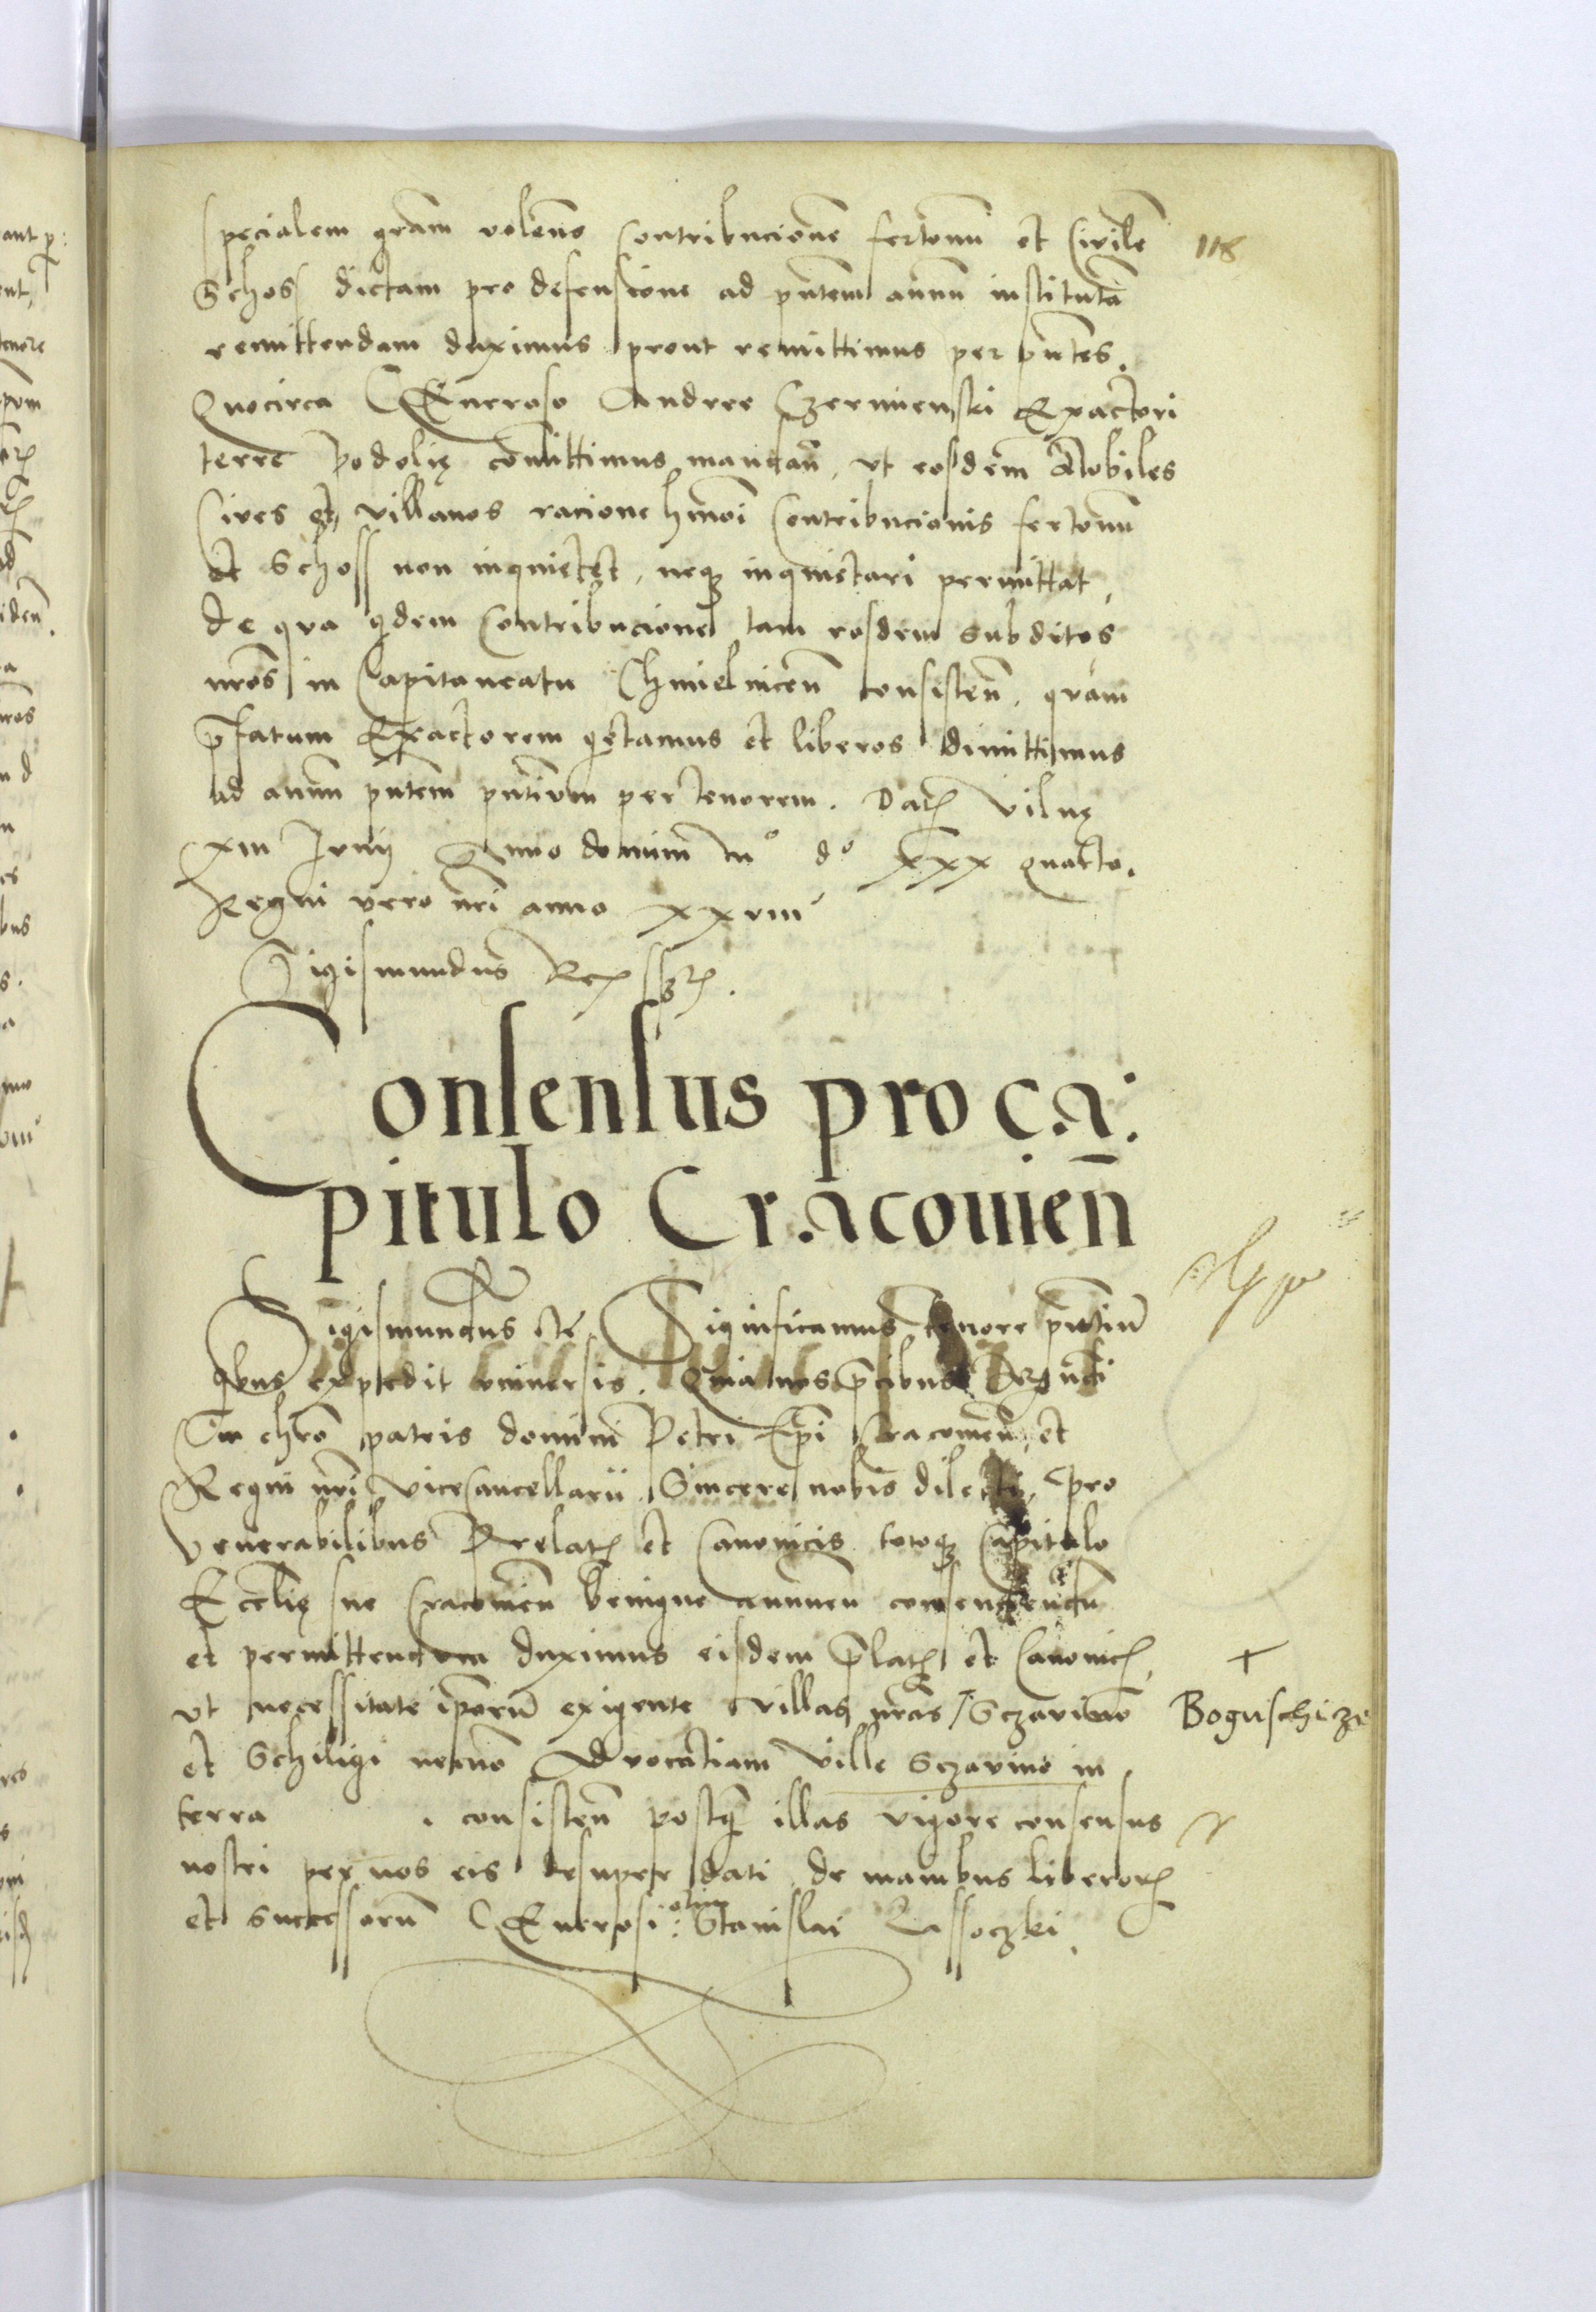 specialem gram volen̄o Contribucionē fertonū et Civilē
118
Schoss dictam pro defensione ad pn̄tem annū institutā
remittendam duximus prout remittimus per pn̄tes.
Quocirca Generoso Andree Czermienski Exactori
terre podolię com̄ittimus mandan̄, vt eosdem Nobiles
Cives et villanos racione hm̄oi Contribucionis fertonū
et Schoss non inquietet, neqꝫ inquietari permittat,
de qua qdem Contribucione tam eosdem subditos
nr̄os in Capitaneatu Chmielnicen̄ consisten̄, quam
p̄fatum Exactorem qetamus et liberos dimittimus
ad annū pn̄tem pn̄tium per tenorem. Datꝭ Vilnę
xiii Iunij Anno domini mº dº xxx quarto.
Regni vero nr̄i anno xxviii
Sigismundus Rex sszꝭ.
Consensus pro ca:
pitulo Cracouien̄
Sigismundus etc̄. Significamus tenore pn̄tiū
qbus expedit vniuersis. Quia nos p̄cibus Rꝫndi
In chrō patris domini Petri Ep̄i Cracouien̄, et
Regni nr̄i ViceCancellarii Sincere nobis dilecti, pro
Venerabilibus Prelatꝭ et Canonicis totoqꝫ Capitulo
Ecclię sue Cracouien̄ benigne annuen̄ consentiendū
et permittendum duximus eisdem p̄latꝭ et Canonicꝭ,
+
vt necessitate ip̄orū exigente villas nr̄as Sczarivio
Boguschicze
et Schiligi necno Advocatiam Ville Sczavino in
terra . consisten̄ postq̄ illas vigore consensus
nostri per nos eis desuper dati de manibus liberorꝭ
et successorū Generosi olim Stanislai Lassoczki